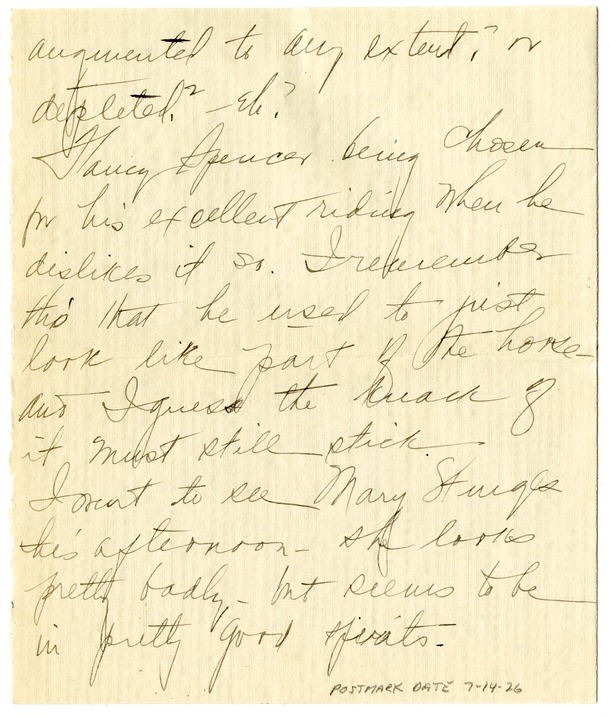 augmented to any extent? or
depleted? – Eh?
Fancy Spencer being chosen
for his excellent riding when he
dislikes it so. I remember
tho' that he used to just
look like part of the horse
and I guess the knack of
it must still stick.
I went to see Mary Sturges
this afternoon – she looks
pretty badly – but seems to be
in pretty good spirits.
POSTMARK DATE 7-14-26